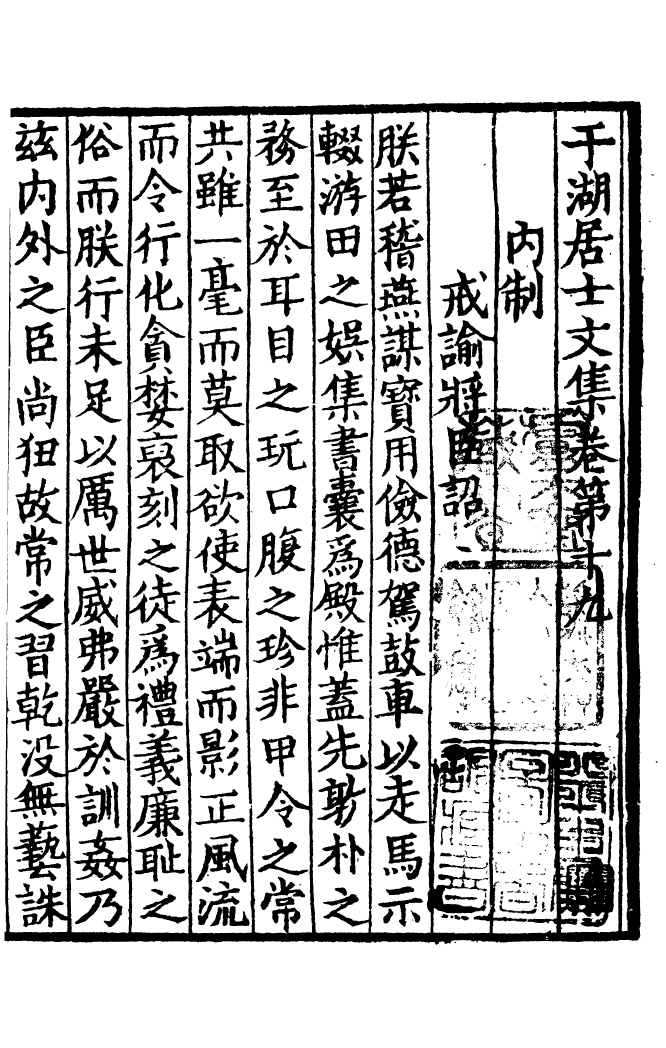 于湖居士文集卷第十九
内制
戒諭將臣詔
朕若稽燕謀寳用儉德駕鼓車以走馬示
輟游田之娯集書囊爲殿惟蓋先躬朴之
務至於耳目之玩口腹之珍非甲令之常
共雖一毫而莫取欲使表端而影正風流
而令行化貪婪裒刻之徒爲禮義廉耻之
俗而朕行未足以厲世威弗嚴於訓姦乃
兹内外之臣尚狃故常之習乾没無藝誅